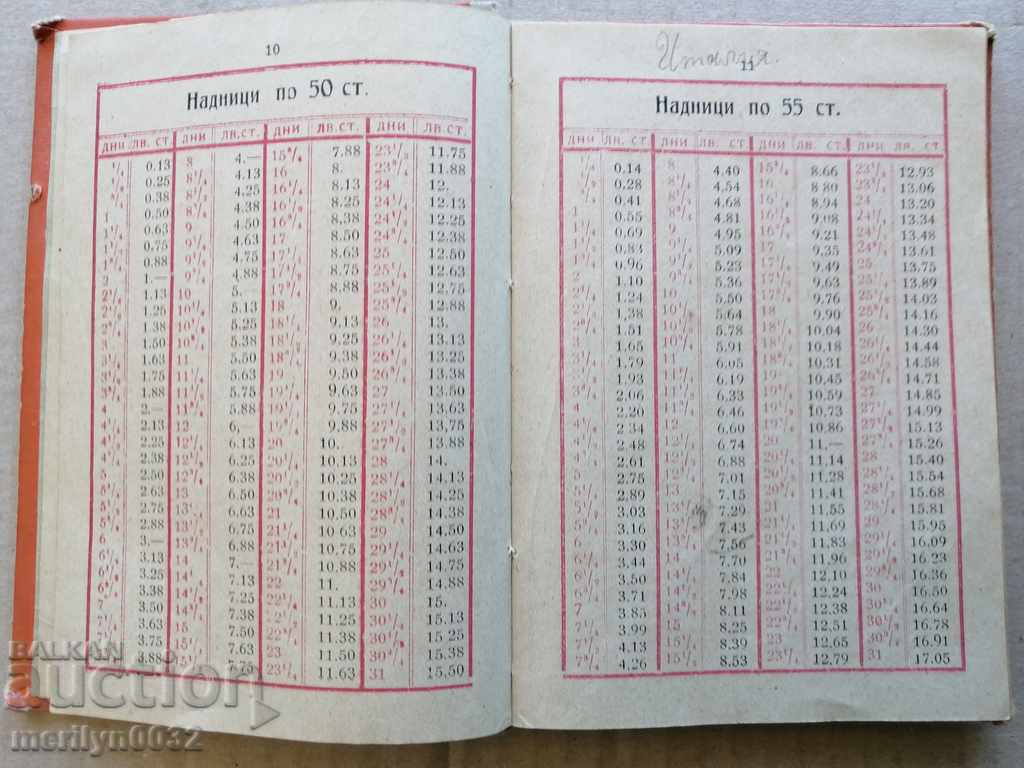 10
Надници по 50 ст.
дни лв. ст. дни лв.ст. дни лв.ст. дни лв.ст.
1/4 0.13 8 4.— 15 3/4 7.88 23 1/2 11.75
1/2 0.25 8 1/4 4.13 16 8. 23 3/4 11.88
3/4 0.38 8 1/2 4.25 16 1/4 8.13 24 12.
1 0.50 8 3/4 4.38 16 1/2 8.25 24 1/4 12.13
1 1/4 0.63 9 4.50 16 3/4 8.38 24 1/2 12.25
1 1/2 0.75 9 1/4 4.63 17 8.50 24 3/4 12.38
1 3/4 0.88 9 1/2 4.75 17 1/4 8.63 25 12.50
2 1.— 9 3/4 4.88 17 1/2 8.75 25 1/4 12.63
2 1/4 1.13 10 5.— 17 3/4 8.88 25 1/2 12.75
2 1/2 1.25 10 1/4 5.13 18 9. 25 3/4 12.88
2 3/4 1.38 10 1/2 5.25 18 1/4 9.13 26 13.
3 1.50 10 3/4 5.38 18 1/2 9.25 26 1/4 13.13
3 1/4 1.63 11 5.50 18 3/4 9.38 26 1/2 13.25
3 1/2 1.75 11 1/4 5.63 19 9.50 26 3/4 13.38
3 3/4 1.88 11 1/2 5.75 19 1/4 9.63 27 13.50
4 2.— 11 3/4 5.88 19 1/2 9.75 27 1/4 13.63
4 1/4 2.13 12 6.— 19 3/4 9.88 27 1/2 13.75
4 1/2 2.25 12 1/4 6.13 20 10. 27 3/4 13.88
4 3/4 2.38 12 1/2 6.25 20 1/4 10.13 28 14.
5 2.50 12 3/4 6.38 20 1/2 10.25 28 1/4 14.13
5 1/4 2.63 13 6.50 20 3/4 10.38 28 1/2 14.25
5 1/2 2.75 13 1/4 6.63 21 10.50 28 3/4 14.38
5 3/4 2.88 13 1/2 6.75 21 1/4 10.63 29 14.50
6 3.— 13 3/4 6.88 21 1/2 10.75 29 1/4 14.63
6 1/4 3.13 14 7.— 21 3/4 10.88 29 1/2 14.75
6 1/2 3.25 14 1/4 7.13 22 11. 29 3/4 14.88
6 3/4 3.38 14 1/2 7.25 22 1/4 11.13 30 15.
7 3.50 14 3/4 7.38 22 1/2 11.25 30 1/4 15.13
7 1/4 3.63 15 7.50 22 3/4 11.38 30 1/2 15.25
7 1/2 3.75 15 1/4 7.63 23 11.50 30 3/4 15.38
7 3/4 3.88 15 1/2 7.75 23 1/4 11.63 31 15.50
11
Надници по 55 ст.
дни лв. ст. дни лв. ст. дни лв. ст. дни лв. ст.
1/4 0.14 8 4.40 15 3/4 8.66 23 1/2 12.93
1/2 0.28 8 1/4 4.54 16 8.80 23 3/4 13.06
3/4 0.41 8 1/2 4.68 16 1/4 8.94 24 13.20
1 0.55 8 3/4 4.81 16 1/2 9.08 24 1/4 13.34
1 1/4 0.69 9 4.95 16 3/4 9.21 24 1/2 13.48
1 1/2 0.83 9 1/4 5.09 17 9.35 24 3/4 13.61
1 3/4 0.96 9 1/2 5.23 17 1/4 9.49 25 13.75
2 1.10 9 3/4 5.36 17 1/2 9.63 25 1/4 13.89
2 1/4 1.24 10 5.50 17 3/4 9.76 25 1/2 14.03
2 1/2 1.38 10 1/4 5.64 18 9.90 25 3/4 14.16
2 3/4 1.51 10 1/2 5.78 18 1/4 10.04 26 14.30
3 1.65 10 3/4 5.91 18 1/2 10.18 26 1/4 14.44
3 1/4 1.79 11 6.05 18 3/4 10.31 26 1/2 14.58
3 1/2 1.93 11 1/4 6.19 19 10.45 26 3/4 14.71
3 3/4 2.06 11 1/2 6.33 19 1/4 10.59 27 14.85
4 2.20 11 3/4 6.46 19 1/2 10.73 27 1/4 14.99
4 1/4 2.34 12 6.60 19 3/4 10.86 27 1/2 15.13
4 1/2 2.48 12 1/4 6.74 20 11.— 27 3/4 15.26
4 3/4 2.61 12 1/2 6.88 20 1/4 11.14 28 15.40
5 2.75 12 3/4 7.01 20 1/2 11.28 28 1/4 15.54
5 1/4 2.89 13 7.15 20 3/4 11.41 28 1/2 15.68
5 1/2 3.03 13 1/4 7.29 21 11.55 28 3/4 15.81
5 3/4 3.16 13 1/2 7.43 21 1/4 11.69 29 15.95
6 3.30 13 3/4 7.56 21 1/2 11.83 29 1/4 16.09
6 1/4 3.44 14 7.70 21 3/4 11.96 29 1/2 16.23
6 1/2 3.50 14 1/4 7.84 22 12.10 29 3/4 16.36
6 3/4 3.71 14 1/2 7.98 22 1/4 12.24 30 16.50
7 3.85 14 3/4 8.11 22 1/2 12.38 30 1/4 16.64
7 1/4 3.99 15 8.25 22 3/4 12.51 30 1/2 16.78
7 1/2 4.13 15 1/4 8.39 23 12.65 30 3/4 16.91
7 3/4 4.26 15 1/2 8.53 23 1/4 12.79 31 17.05
BALKAN
auction
merilyn0032